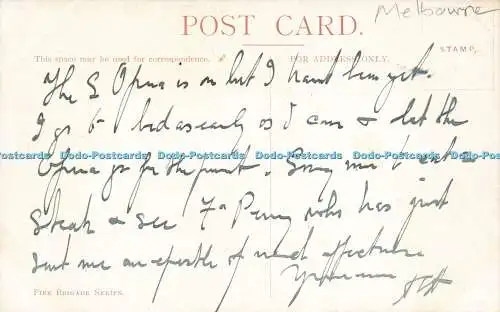 Melbourne
POST CARD.
This space may be used for correspondence.
FOR ADDRESS ONLY.
STAMP.
The £ Opera is on but I havnt been yet.
I go to bed as early as I can & let the
Dodo-Postcards Dodo-Postcards Dodo-Postcards Dodo-Postcards Dodo-Postcards Dodo-Postcards
Opera go for the present. Sorry me to eat a
steak & see Fr Percy who has just
sent me an epistle of much affection
Yours
FIRE BRIGADE SERIES.